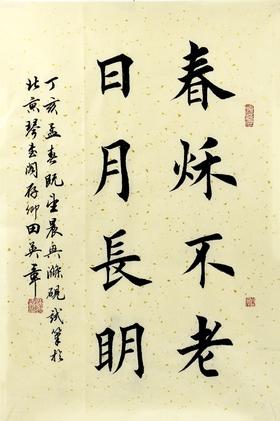 春秌不老
日月長明
丁亥孟春既望晨興滌硯試筆於
北京琴書閣存卿田英章